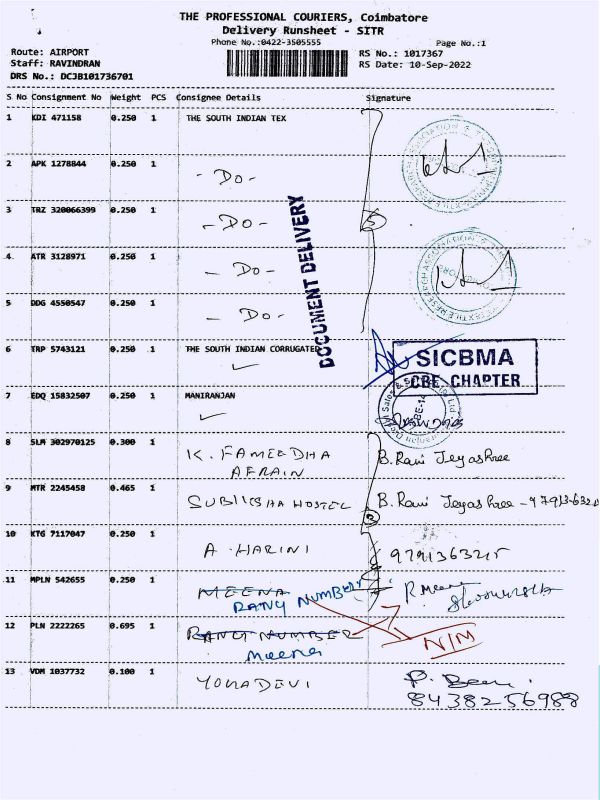 THE PROFESSIONAL COURIERS, Coimbatore
Delivery Runsheet - SITR
Phone No.:0422-3505555 Page No.:1
Route: AIRPORT RS No.: 1017367
Staff: RAVINDRAN RS Date: 10-Sep-2022
DRS No.: DCJB101736701
S No Consignment No Weight PCS Consignee Details Signature
1 KDI 471158 0.250 1 THE SOUTH INDIAN TEX
2 APK 1278844 0.250 1 - DO -
3 TRZ 320066399 0.250 1 - DO -
5
4 ATR 3128971 0.250 1 - DO -
5 DDG 4550547 0.250 1 - DO -
DOCUMENT DELIVERY
6 TRP 5743121 0.250 1 THE SOUTH INDIAN CORRUGATED
SICBMA
CBE CHAPTER
7 EDQ 15832507 0.250 1 MANIRANJAN
8 SLM 302970125 0.300 1 K. FAMEEDHA B. Rani Jeyashree
AFRAIN
9 MTR 2245458 0.465 1 SUBIKSHA HOSTEL B. Rani Jeyashree - 97913-6320
10 KTG 7117047 0.250 1 A. HARINI 9791363215
11 MPLN 542655 0.250 1 MEENA
RANG NUMBER
12 PLN 2222265 0.695 1 RANG NUMBER N/M
Meena
13 VDM 1037732 0.100 1 YOGADEVI
8438256988